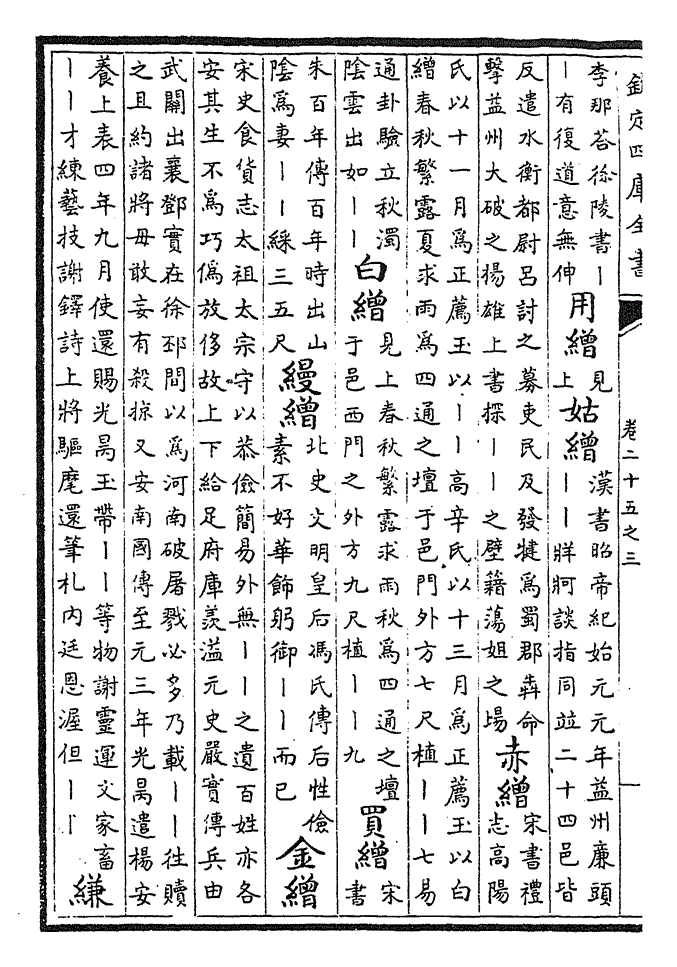 欽定四庫全書 卷二十五之三
李那荅徐陵書丨
丨有復道意無伸
用繒
見
上
姑繒
漢書昭帝紀始元元年益州廉頭
丨丨牂牁談指同並二十四邑皆
反遣水衡都尉呂討之募吏民及發犍為蜀郡犇命
擊益州大破之揚雄上書探丨丨之壁籍蕩姐之場
赤繒
宋書禮
志高陽
氏以十一月為正薦玉以丨丨高辛氏以十三月為正薦玉以白
繒春秋繁露夏求雨為四通之壇于邑門外方七尺植丨丨七易
通卦驗立秋濁
陰雲出如丨丨
白繒
見上春秋繁露求雨秋為四通之壇
于邑西門之外方九尺植丨丨九
買繒
宋
書
朱百年傳百年時出山
陰為妻丨丨綵三五尺
縵繒
北史文明皇后馮氏傳后性儉
素不好華飾躬御丨丨而已
金繒
宋史食貨志太祖太宗守以恭儉簡易外無丨丨之遺百姓亦各
安其生不為巧偽放侈故上下給足府庫羨溢元史嚴實傳兵由
武關出襄鄧實在徐邳間以為河南破屠戮必多乃載丨丨往贖
之且約諸將毋敢妄有殺掠又安南國傳至元三年光昺遣楊安
養上表四年九月使還賜光昺玉帶丨丨等物謝靈運文家畜
丨丨才練藝技謝鐸詩上將驅麾還筆札內廷恩渥但丨丨
縑